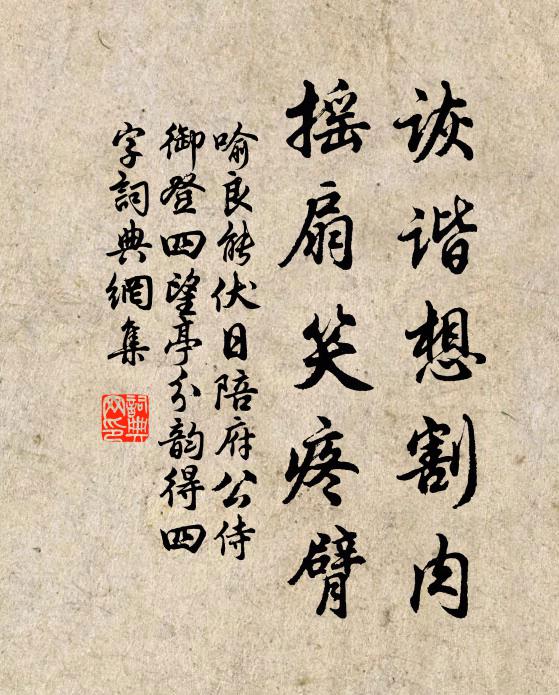 诙谐想割肉
摇扇笑疼臂
喻良能伏日陪府公侍
御登四望亭分韵得四
字詞典網集
詞典
网印